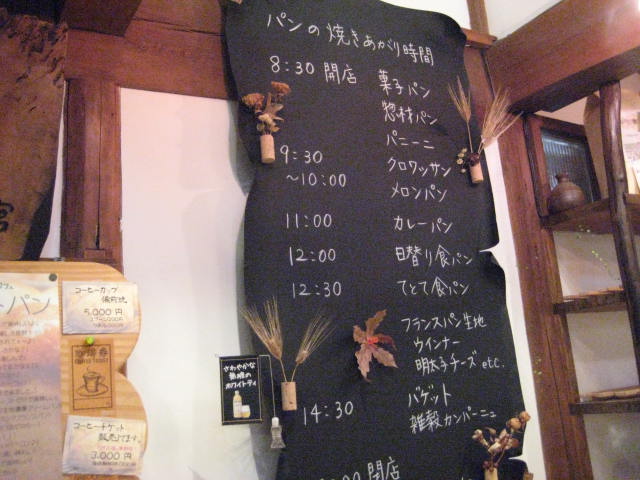 パンの焼きあがり時間
8:30 開店 菓子パン
惣材パン
パニーニ
9:30 クロワッサン
~10:00 メロンパン
11:00 カレーパン
12:00 日替り食パン
12:30 てとて食パン
フランスパン生地
ウインナー
明太子チーズ etc.
14:30 バゲット
雑穀カンパーニュ
開店
さわやかな
ホワイトティ
コーヒーカップ
備前焼
5,000円
珈琲券
コーヒーチケット
販売してます。
3,000円
パン
宮